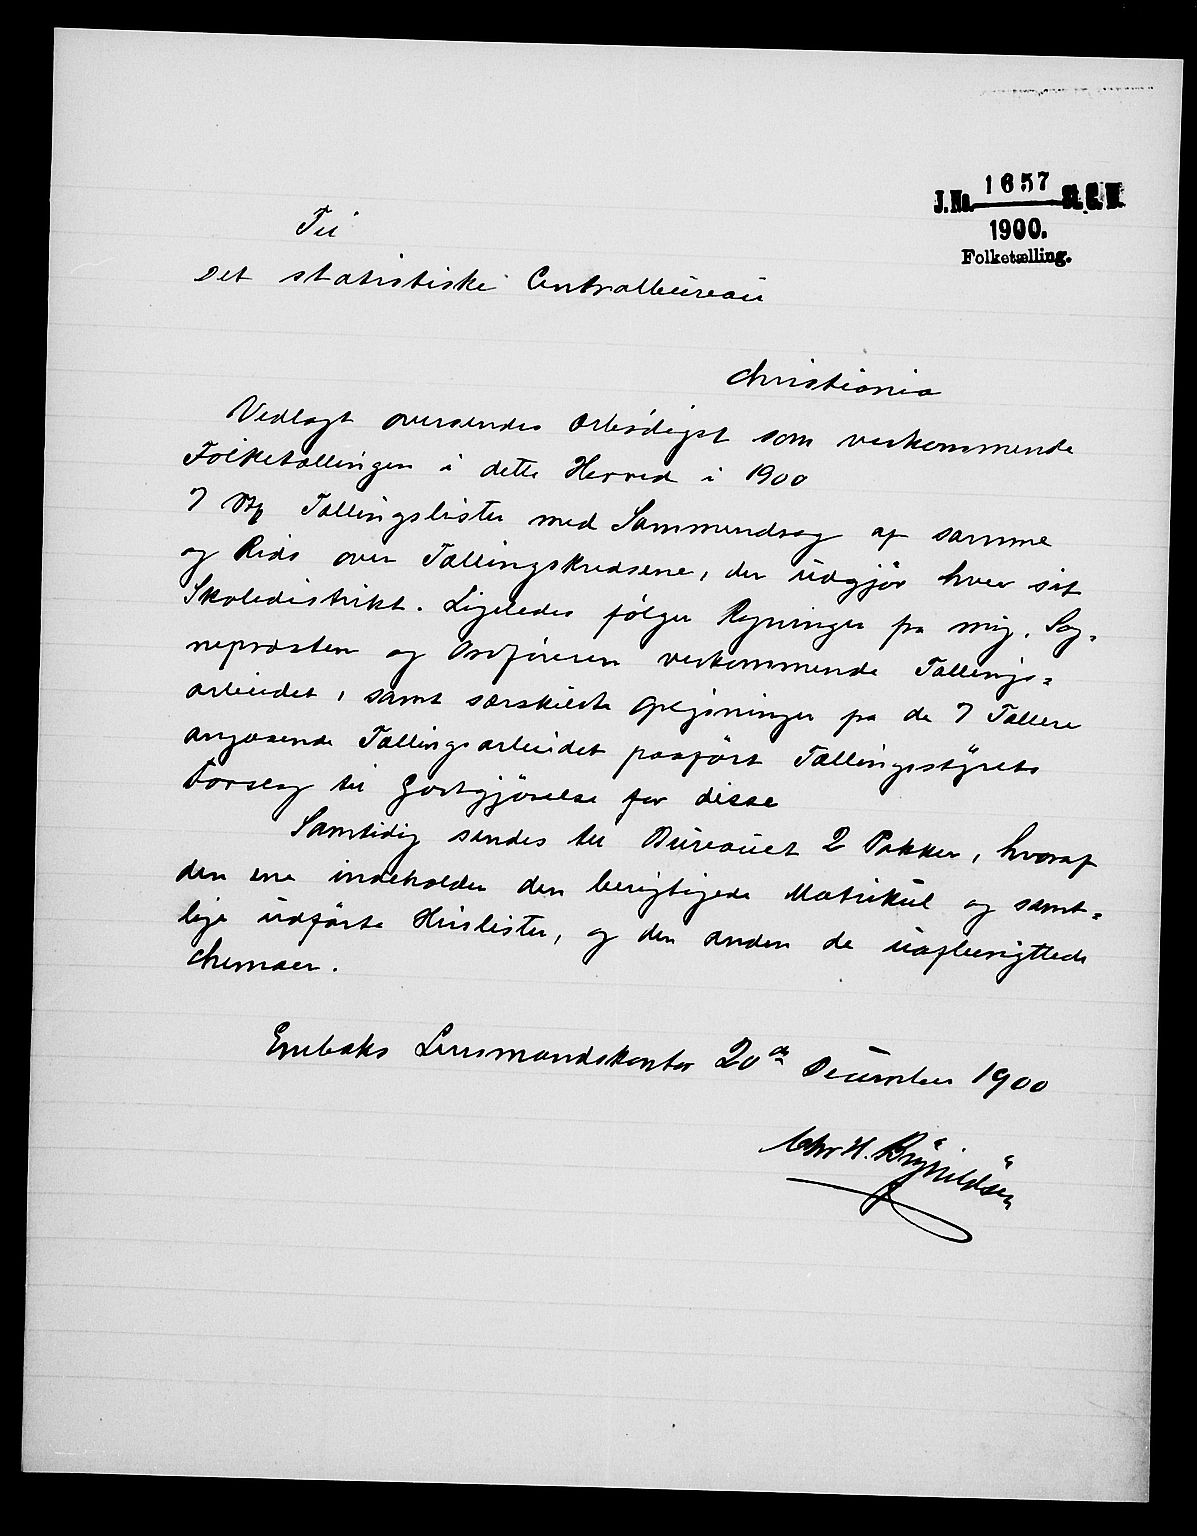 J.No. 1657 St. C. B.
1900.
Folketælling.
Til
Det statistiske Centralbureau
Christiania
Vedlagt oversendes ærbødigst som vedkommende
Folketællingen i dette Herred i 1900
7 Stk Tællingslister med Sammendrag af samme
og Rids over Tællingskredsene, der udgjør hver sit
Skoledistrikt. Ligeledes følger Regninger fra mig, Sog-
nepræsten og Ordføreren vedkommende Tællings-
arbeidet, samt særskildte Opgjøninger fra de 7 Tællere
angaaende Tællingsarbeidet paaført Tællingsstyrets
Forslag til Godtgjørelse for disse
Samtidig sendes til Bureauet 2 Pakker, hvoraf
den ene indeholder den berigtigede Matrikul og samt-
lige udførte Huslister, og den anden de uafbenyttede
chemaer.
Enebaks Lensmandskontor 20de December 1900
Chr H. Brynildsen